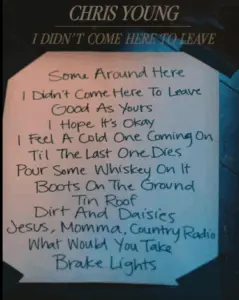 CHRIS YOUNG
I DIDN'T COME HERE TO LEAVE
Some Around Here
I Didn't Come Here To Leave
Good As Yours
I Hope It's Okay
I Feel A Cold One Coming On
Til The Last One Dies
Pour Some Whiskey On It
Boots On The Ground
Tin Roof
Dirt And Daisies
Jesus, Momma, Country Radio
What Would You Take
Brake Lights